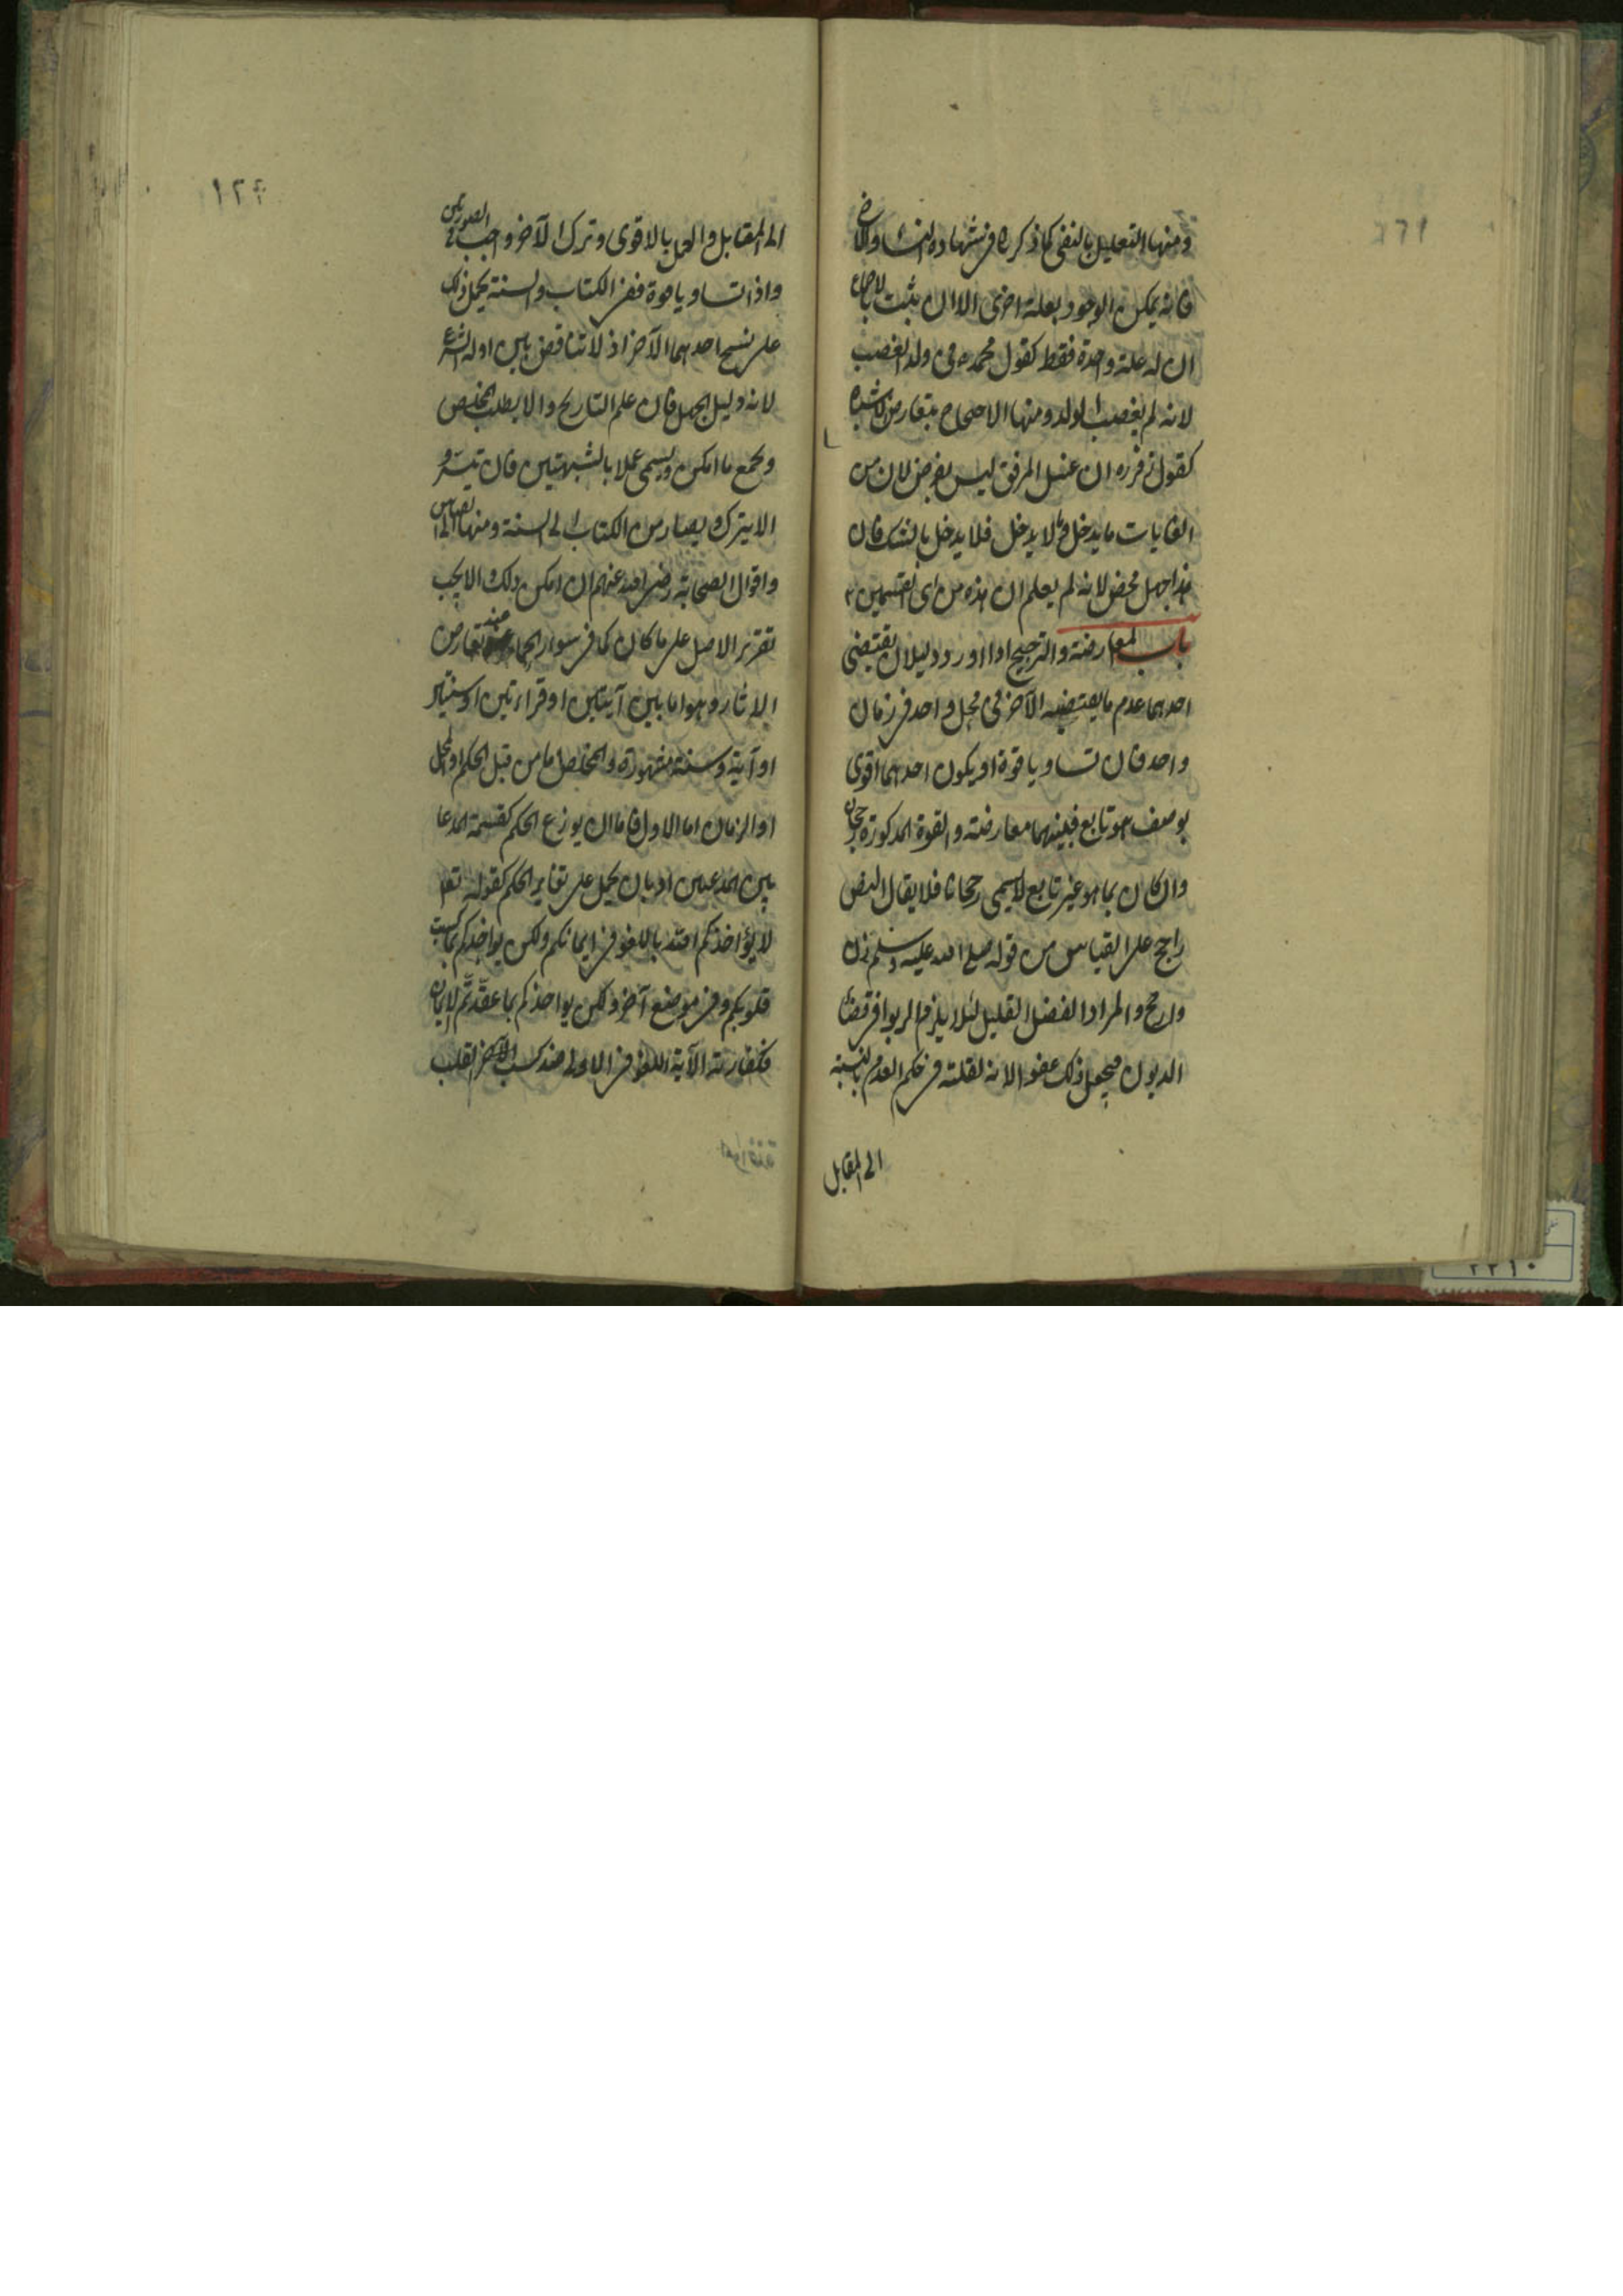 ومنها التعليل بالنفى كما ذكره فى شهادة النساء والاخ
فانه يمكن الوجود بعلة اخرى الا ان يثبت بالاجماع
ان له علة واحدة فقط كقول محمد ره فى ولد الغصب
لانه لم يغصب الولد ومنها الاحتجاج بتعارض الاشباه
كقول زفر ره ان غسل المرفق ليس بفرض لان من
الغايات ما يدخل وما لا يدخل فلا يدخل بالشك فان
هذا جهل محض لانه لم يعلم ان هذه من اى القسمين
باب المعارضة والترجيح اذا اورد دليلان يقتضى
احدهما عدم ما يقتضيه الآخر فى محل واحد فى زمان
واحد فان تساويا قوة او يكون احدهما اقوى
بوصف هو تابع فبينهما معارضة والقوة المذكورة رجحان
وان كان بما هو غير تابع لا يسمى رجحانا فلا يقال النص
راجح على القياس من قوله صلى الله عليه وسلم زن
وارجح والمراد الفضل القليل لئلا يلزم الربوا فى قضاء
الديون فيجعل ذلك عفوا لانه لقلته فى حكم العدم بالنسبة
الى المقابل
١٢٤
الى المقابل والعمل بالاقوى وترك الآخر واجب فى الصورتين
واذا تساويا قوة ففى الكتاب والسنة يحمل ذلك
على نسخ احدهما الآخر اذ لا تناقض بين ادلة الشرع
لانه دليل الجهل فان علم التاريخ والا يطلب المخلص
ويجمع ما امكن ويسمى عملا بالشبهين فان تيسر و
الا يترك ويصار من الكتاب الى السنة ومنها الى القياس
واقوال الصحابة رضى الله عنهم ان امكن ذلك والا يجب
تقرير الاصل على ما كان كما فى سؤر الحمار عند تعارض
الاثار وهو اما بين آيتين او قراءتين او سنتين
او آية وسنة مشهورة والمخلص اما من قبل الحكم او المحل
او الزمان اما الاول فاما ان يوزع الحكم كقسمة المدعا
بين المدعيين او بان يحمل على تغاير الحكم كقوله تعا
لا يؤاخذكم الله باللغو فى ايمانكم ولكن يواخذكم بما كسبت
قلوبكم وفى موضع آخر ولكن يواخذكم بما عقدتم الايمان
فكفارته الآية اللغو فى الاولى ضد كسب القلب